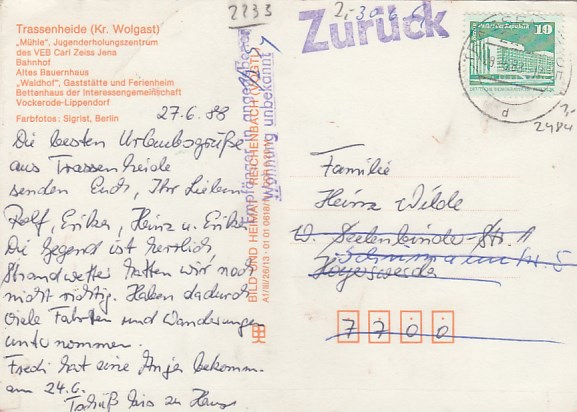 Trassenheide (Kr. Wolgast)
„Mühle", Jugenderholungszentrum
des VEB Carl Zeiss Jena
Bahnhof
Altes Bauernhaus
„Waldhof", Gaststätte und Ferienheim
Bettenhaus der Interessengemeinschaft
Vockerode-Lippendorf
Farbfotos: Sigrist, Berlin
27.6.88
Die besten Urlaubsgrüße
aus Trassenheide
senden Euch, Ihr Lieben
Rolf, Erika, Heinz u. Erika
Die Gegend ist herrlich
Strandwetter hatten wir noch
nicht richtig. Haben dadurch
viele Fahrten und Wanderungen
unternommen.
Fredi hat eine Anja bekomm.
am 24.6.
Tschüß bis zu Haus
2233
Zurück
Empfänger unbekannt
Wohnung unbekannt
BILD UND HEIMAT REICHENBACH (VOGTL)
10
DEUTSCHE DEMOKRATISCHE REPUBLIK
d
2484
Familie
Heinz Wilde
W. Seelenbinder-Str. 11
Hoyerswerda
7700